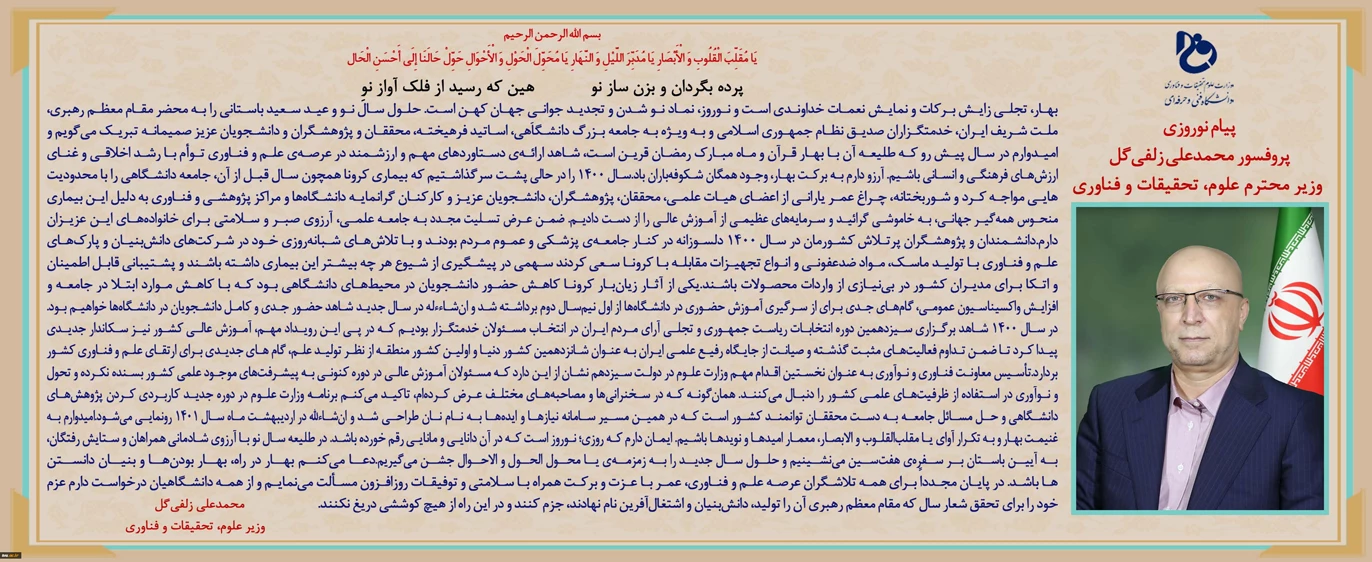 وزارت علوم، تحقیقات و فناوری
دانشگاه فنی و حرفه‌ای
پیام نوروزی
پروفسور محمدعلی زلفی‌گل
وزیر محترم علوم، تحقیقات و فناوری
بسم الله الرحمن الرحیم
یَا مُقَلِّبَ الْقُلُوبِ وَ الْأَبْصَارِ یَا مُدَبِّرَ اللَّیْلِ وَ النَّهَارِ یَا مُحَوِّلَ الْحَوْلِ وَ الْأَحْوَالِ حَوِّلْ حَالَنَا إِلَى أَحْسَنِ الْحَالِ
پرده بگردان و بزن ساز نو هین که رسید از فلک آواز نو
بهار، تجلی زایش برکات و نمایش نعمات خداوندی است و نوروز، نماد نو شدن و تجدید جوانی جهان کهن است. حلول سال نو و عید سعید باستانی را به محضر مقام معظم رهبری،
ملت شریف ایران، خدمتگزاران صدیق نظام جمهوری اسلامی و به ویژه به جامعه بزرگ دانشگاهی، اساتید فرهیخته، محققان و پژوهشگران و دانشجویان عزیز صمیمانه تبریک می‌گویم و
امیدوارم در سال پیش رو که طلیعه آن با بهار قرآن و ماه مبارک رمضان قرین است، شاهد ارائه‌ی دستاوردهای مهم و ارزشمند در عرصه‌ی علم و فناوری توأم با رشد اخلاقی و غنای
ارزش‌های فرهنگی و انسانی باشیم. آرزو دارم به برکت بهار، وجود همگان شکوفه‌باران باد.سال ۱۴۰۰ را در حالی پشت سر گذاشتیم که بیماری کرونا همچون سال قبل از آن، جامعه دانشگاهی را با محدودیت
هایی مواجه کرد و شوربختانه، چراغ عمر یارانی از اعضای هیات علمی، محققان، پژوهشگران، دانشجویان عزیز و کارکنان گرانمایه دانشگاه‌ها و مراکز پژوهشی و فناوری به دلیل این بیماری
منحوس همه‌گیر جهانی، به خاموشی گرائید و سرمایه‌های عظیمی از آموزش عالی را از دست دادیم. ضمن عرض تسلیت مجدد به جامعه علمی، آرزوی صبر و سلامتی برای خانواده‌های این عزیزان
دارم.دانشمندان و پژوهشگران پرتلاش کشورمان در سال ۱۴۰۰ دلسوزانه در کنار جامعه‌ی پزشکی و عموم مردم بودند و با تلاش‌های شبانه‌روزی خود در شرکت‌های دانش‌بنیان و پارک‌های
علم و فناوری با تولید ماسک، مواد ضدعفونی و انواع تجهیزات مقابله با کرونا سعی کردند سهمی در پیشگیری از شیوع هر چه بیشتر این بیماری داشته باشند و پشتیبانی قابل اطمینان
و اتکا برای مدیران کشور در بی‌نیازی از واردات محصولات باشند.یکی از آثار زیان‌بار کرونا کاهش حضور دانشجویان در محیط‌های دانشگاهی بود که با کاهش موارد ابتلا در جامعه و
افزایش واکسیناسیون عمومی، گام‌های جدی برای از سرگیری آموزش حضوری در دانشگاه‌ها از اول نیم‌سال دوم برداشته شد و ان‌شاءله در سال جدید شاهد حضور جدی و کامل دانشجویان در دانشگاه‌ها خواهیم بود.
در سال ۱۴۰۰ شاهد برگزاری سیزدهمین دوره انتخابات ریاست جمهوری و تجلی آرای مردم ایران در انتخاب مسئولان خدمتگزار بودیم که در پی این رویداد مهم، آموزش عالی کشور نیز سکاندار جدیدی
پیدا کرد تا ضمن تداوم فعالیت‌های مثبت گذشته و صیانت از جایگاه رفیع علمی ایران به عنوان شانزدهمین کشور دنیا و اولین کشور منطقه از نظر تولید علم، گام های جدیدی برای ارتقای علم و فناوری کشور
بردارد.تأسیس معاونت فناوری و نوآوری به عنوان نخستین اقدام مهم وزارت علوم در دولت سیزدهم نشان از این دارد که مسئولان آموزش عالی در دوره کنونی به پیشرفت‌های موجود علمی کشور بسنده نکرده و تحول
و نوآوری در استفاده از ظرفیت‌های علمی کشور را دنبال می‌کنند. همان‌گونه که در سخنرانی‌ها و مصاحبه‌های مختلف عرض کرده‌ام، تاکید می‌کنم برنامه وزارت علوم در دوره جدید کاربردی کردن پژوهش‌های
دانشگاهی و حل مسائل جامعه به دست محققان توانمند کشور است که در همین مسیر سامانه نیازها و ایده‌ها به نام نان طراحی شد و ان‌شاءالله در اردیبهشت ماه سال ۱۴۰۱ رونمایی می‌شود.امیدوارم به
غنیمت بهار و به تکرار آوای یا مقلب‌القلوب و الابصار، معمار امیدها و نویدها باشیم. ایمان دارم که روزی؛ نوروز است که در آن دانایی و مانایی رقم خورده باشد. در طلیعه سال نو با آرزوی شادمانی همراهان و ستایش رفتگان،
به آیین باستان بر سفره‌ی هفت‌سین می‌نشینیم و حلول سال جدید را به زمزمه‌ی یا محول الحول و الاحوال جشن می‌گیریم.دعا می‌کنم بهار در راه، بهار بودن‌ها و بنیان دانستن
ها باشد. در پایان مجددا برای همه تلاشگران عرصه علم و فناوری، عمر با عزت و برکت همراه با سلامتی و توفیقات روزافزون مسألت می‌نمایم و از همه دانشگاهیان درخواست دارم عزم
خود را برای تحقق شعار سال که مقام معظم رهبری آن را تولید، دانش‌بنیان و اشتغال‌آفرین نام نهادند، جزم کنند و در این راه از هیچ کوششی دریغ نکنند.
محمدعلی زلفی‌گل
وزیر علوم، تحقیقات و فناوری